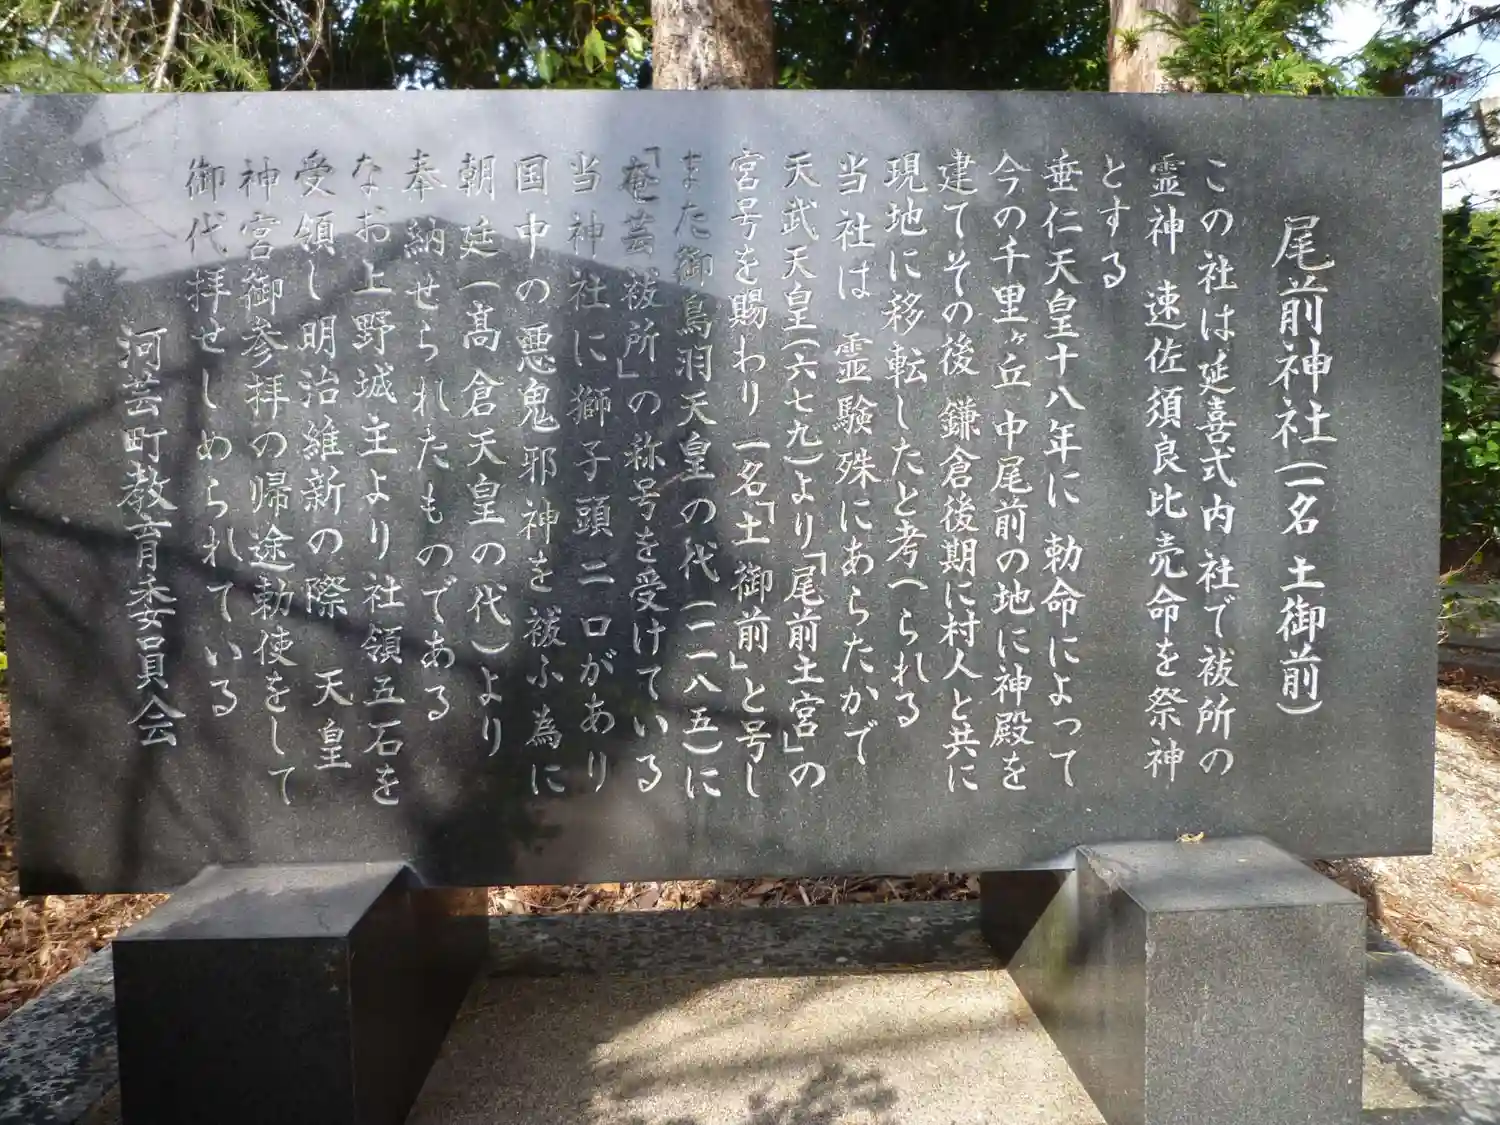 尾前神社(一名 土御前)
この社は延喜式内社で祓所の
霊神 速佐須良比売命を祭神
とする
垂仁天皇十八年に 勅命によって
今の千里ヶ丘 中尾前の地に神殿を
建てその後 鎌倉後期に村人と共に
現地に移転したと考へられる
当社は 霊験殊にあらたかで
天武天皇(六七九)より「尾前土宮」の
宮号を賜わり 一名「土御前」と号し
また御鳥羽天皇の代(一一八五)に
「奄芸祓所」の称号を受けている
当神社に獅子頭二口があり
国中の悪鬼邪神を祓ふ為に
朝廷(髙倉天皇の代)より
奉納せられたものである
なお上野城主より社領五石を
受領し明治維新の際 天皇
神宮御参拝の帰途勅使をして
御代拝せしめられている
河芸町教育委員会